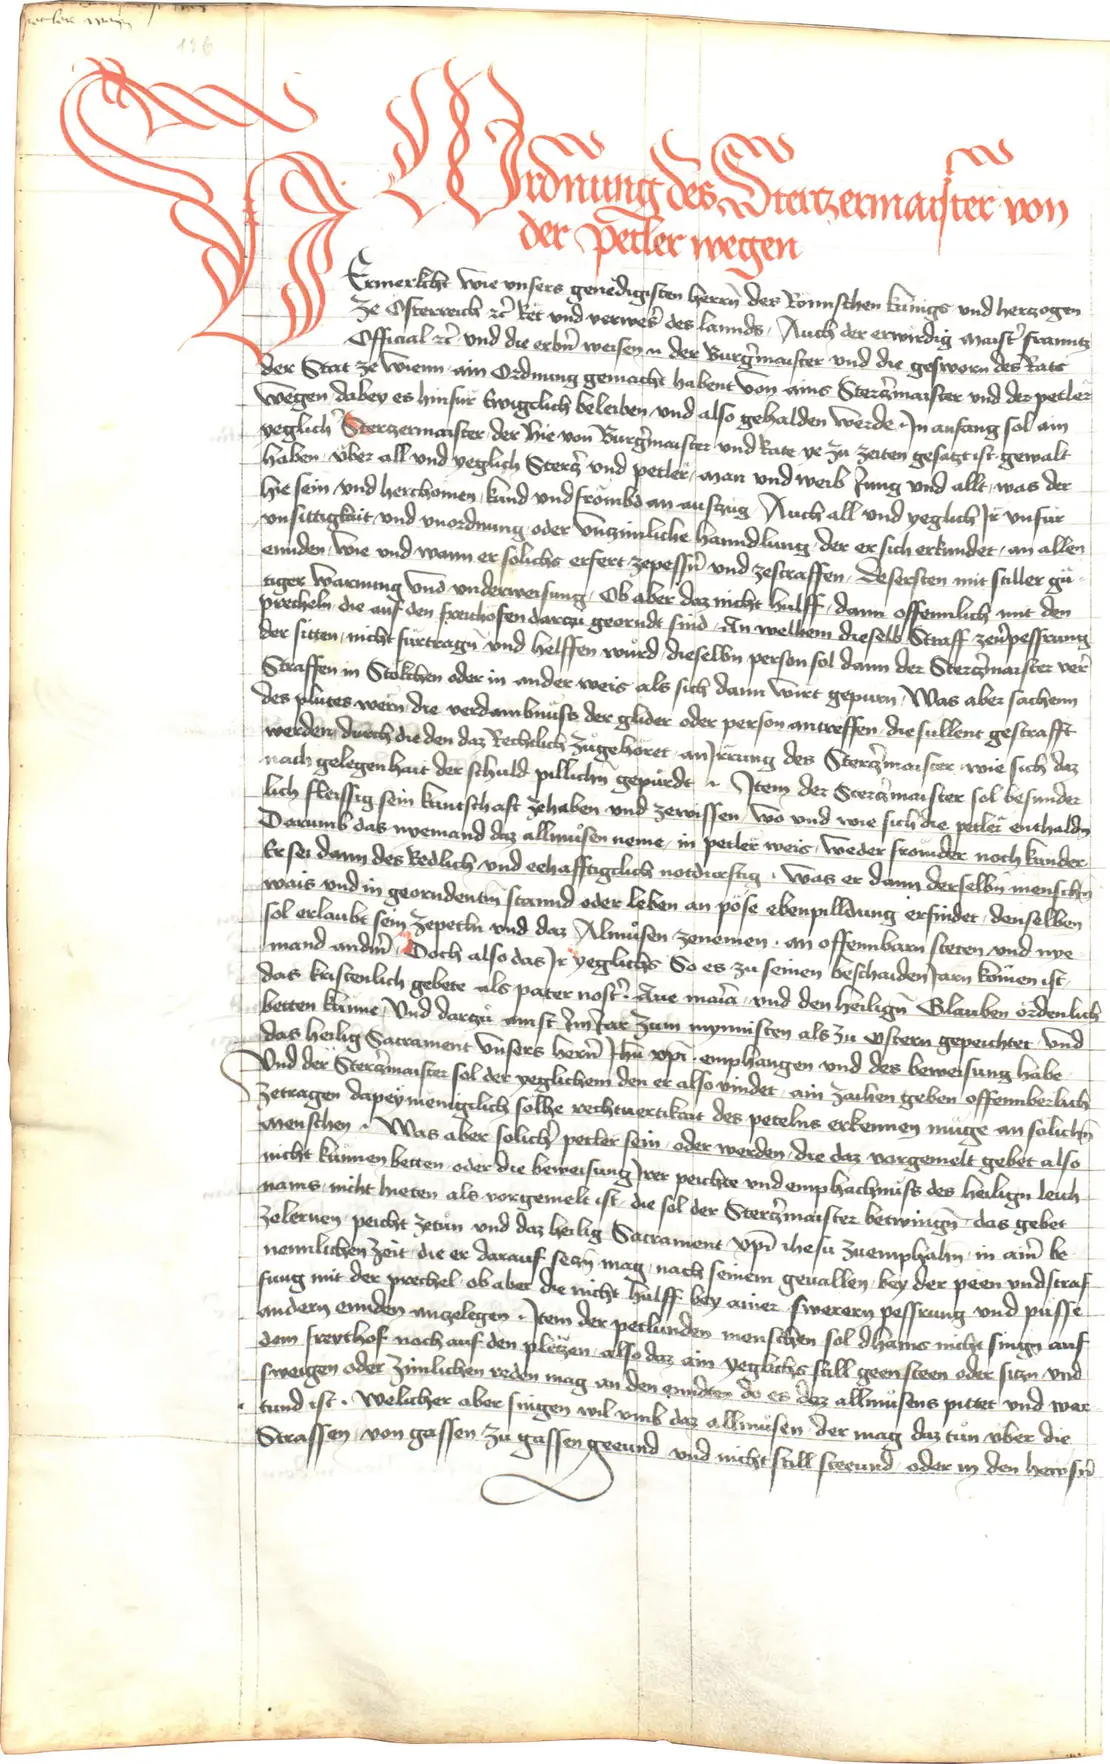 petler wegen
136
Ordnung des Stertzermaister von
der petler wegen
Vermerkcht wie unsers genedigisten herrn des Römischen kunigs und hertzogen
ze Osterreich etc Ret und verweser des lannds / Auch der erwirdig maister Franntz
Official etc und die erbern weisen n der Burgermaister und die gesworn des Rats
der Stat ze Wienn ain Ordnung gemacht habent von ains Stertzermaister und der petler
wegen dabey es hinfür Ewigclich beleiben und also gehalden werde / In anfang sol ain
yeglicher Stertzermaister der hie von Burgermaister und Rate ye zu zeiten gesatzt ist gewalt
haben über all und yeglich Stertzer und petler, man und weib Jung und allt, was der
hie sein und herchomen kund und frömbd an aufzug Auch all und yeglich Ir unfur
unsittigkait und unordnung oder unzimliche hanndlung der er sich erkundet an allen
ennden wie und wann er solichs erfert zepessern und zestraffen Desersten mit stiller gü-
tiger warnung und underweisung / Ob aber daz nicht hulff dann offennlich mit den
precheln die auf den freithofen darczu georndt sind / An welhem dieselb Straff zeuerpessrung
der sitten nicht fürtragen und helffen würd dieselben person sol dann der Stertzermaister ver
Straffen in Stökchen oder in ander weis als sich dann wirt gepurn Was aber sachenn
des plutes wern die verdambnüss der glider oder person antreffen die sullent gestrafft
werden durch die den daz Rechtlich zugehöret an Irrung des Stertzermaister wie sich daz
nach gelegenhait der schuld pillichen gepürdt Item der Stertzermaister sol besunder
lich fleissig sein kuntschaft zehaben und zewissen wo und wie sich die petler enthalden
Darumb das nyemand daz allmusen neme in petler weis weder frömder noch kunder
Er sei dann des Redlich und eehafftigclich notdurftig Was er dann derselben menschen
wais und in georndentem stannd oder leben an pöse ebenpilldung erfindet denselben
sol erlaubt sein zepeteln und daz Almusen zenemen an offennbarn steten und nye
mand anderm Doch also das Ir yeglichs So es zu seinen beschaiden Jarn komen ist
das kristenlich gebete als pater noster Aue maria und den heilign Glauben ordenlich
betten künne Und darczu ainst Im Jar zum mynnisten als zu Ostern gepeichtet und
das heilig Sacrament unsers hern Ihu xpi emphangen und des beweisung habe
Und der Stertzermaister sol der yeglichem den er also vindet ain zaihen geben offennberlich
zetragen dapey menigclich solhe rechtuertikait des petelns erkennen müge an solichen
menschen Was aber solicher petler sein oder werden die daz vorgemelt gebet also
nicht künnen betten oder die beweisung Irer peichte und emphachnüss des heilign leich
nams nicht hieten als vorgemelt ist die sol der Stertzermaister betwingen das gebet
zelernen peicht zetun und daz heilig Sacrament xpi ihesu zuemphahn in ainer be
nennlichen zeit die er darauf seczn mag nach seinem geuallen bey der peen und straf
fung mit der prechel ob aber die nicht hulff bey ainer swerern pessrung und pusse
andern ennden anzelegen Item der petlunden menschen sol dhains nicht singen auf
dem freythof noch auf den pletzen also daz ain yeglichs still geen steen oder siczn und
sweigen oder zimlichen reden mag an den enndten do es daz allmusens pittet und war
tund ist Welicher aber singen wil umb daz allmusen der mag daz tun über die
Strassen von gassen zu gassen geeund und nicht still steeund oder in den hewsern